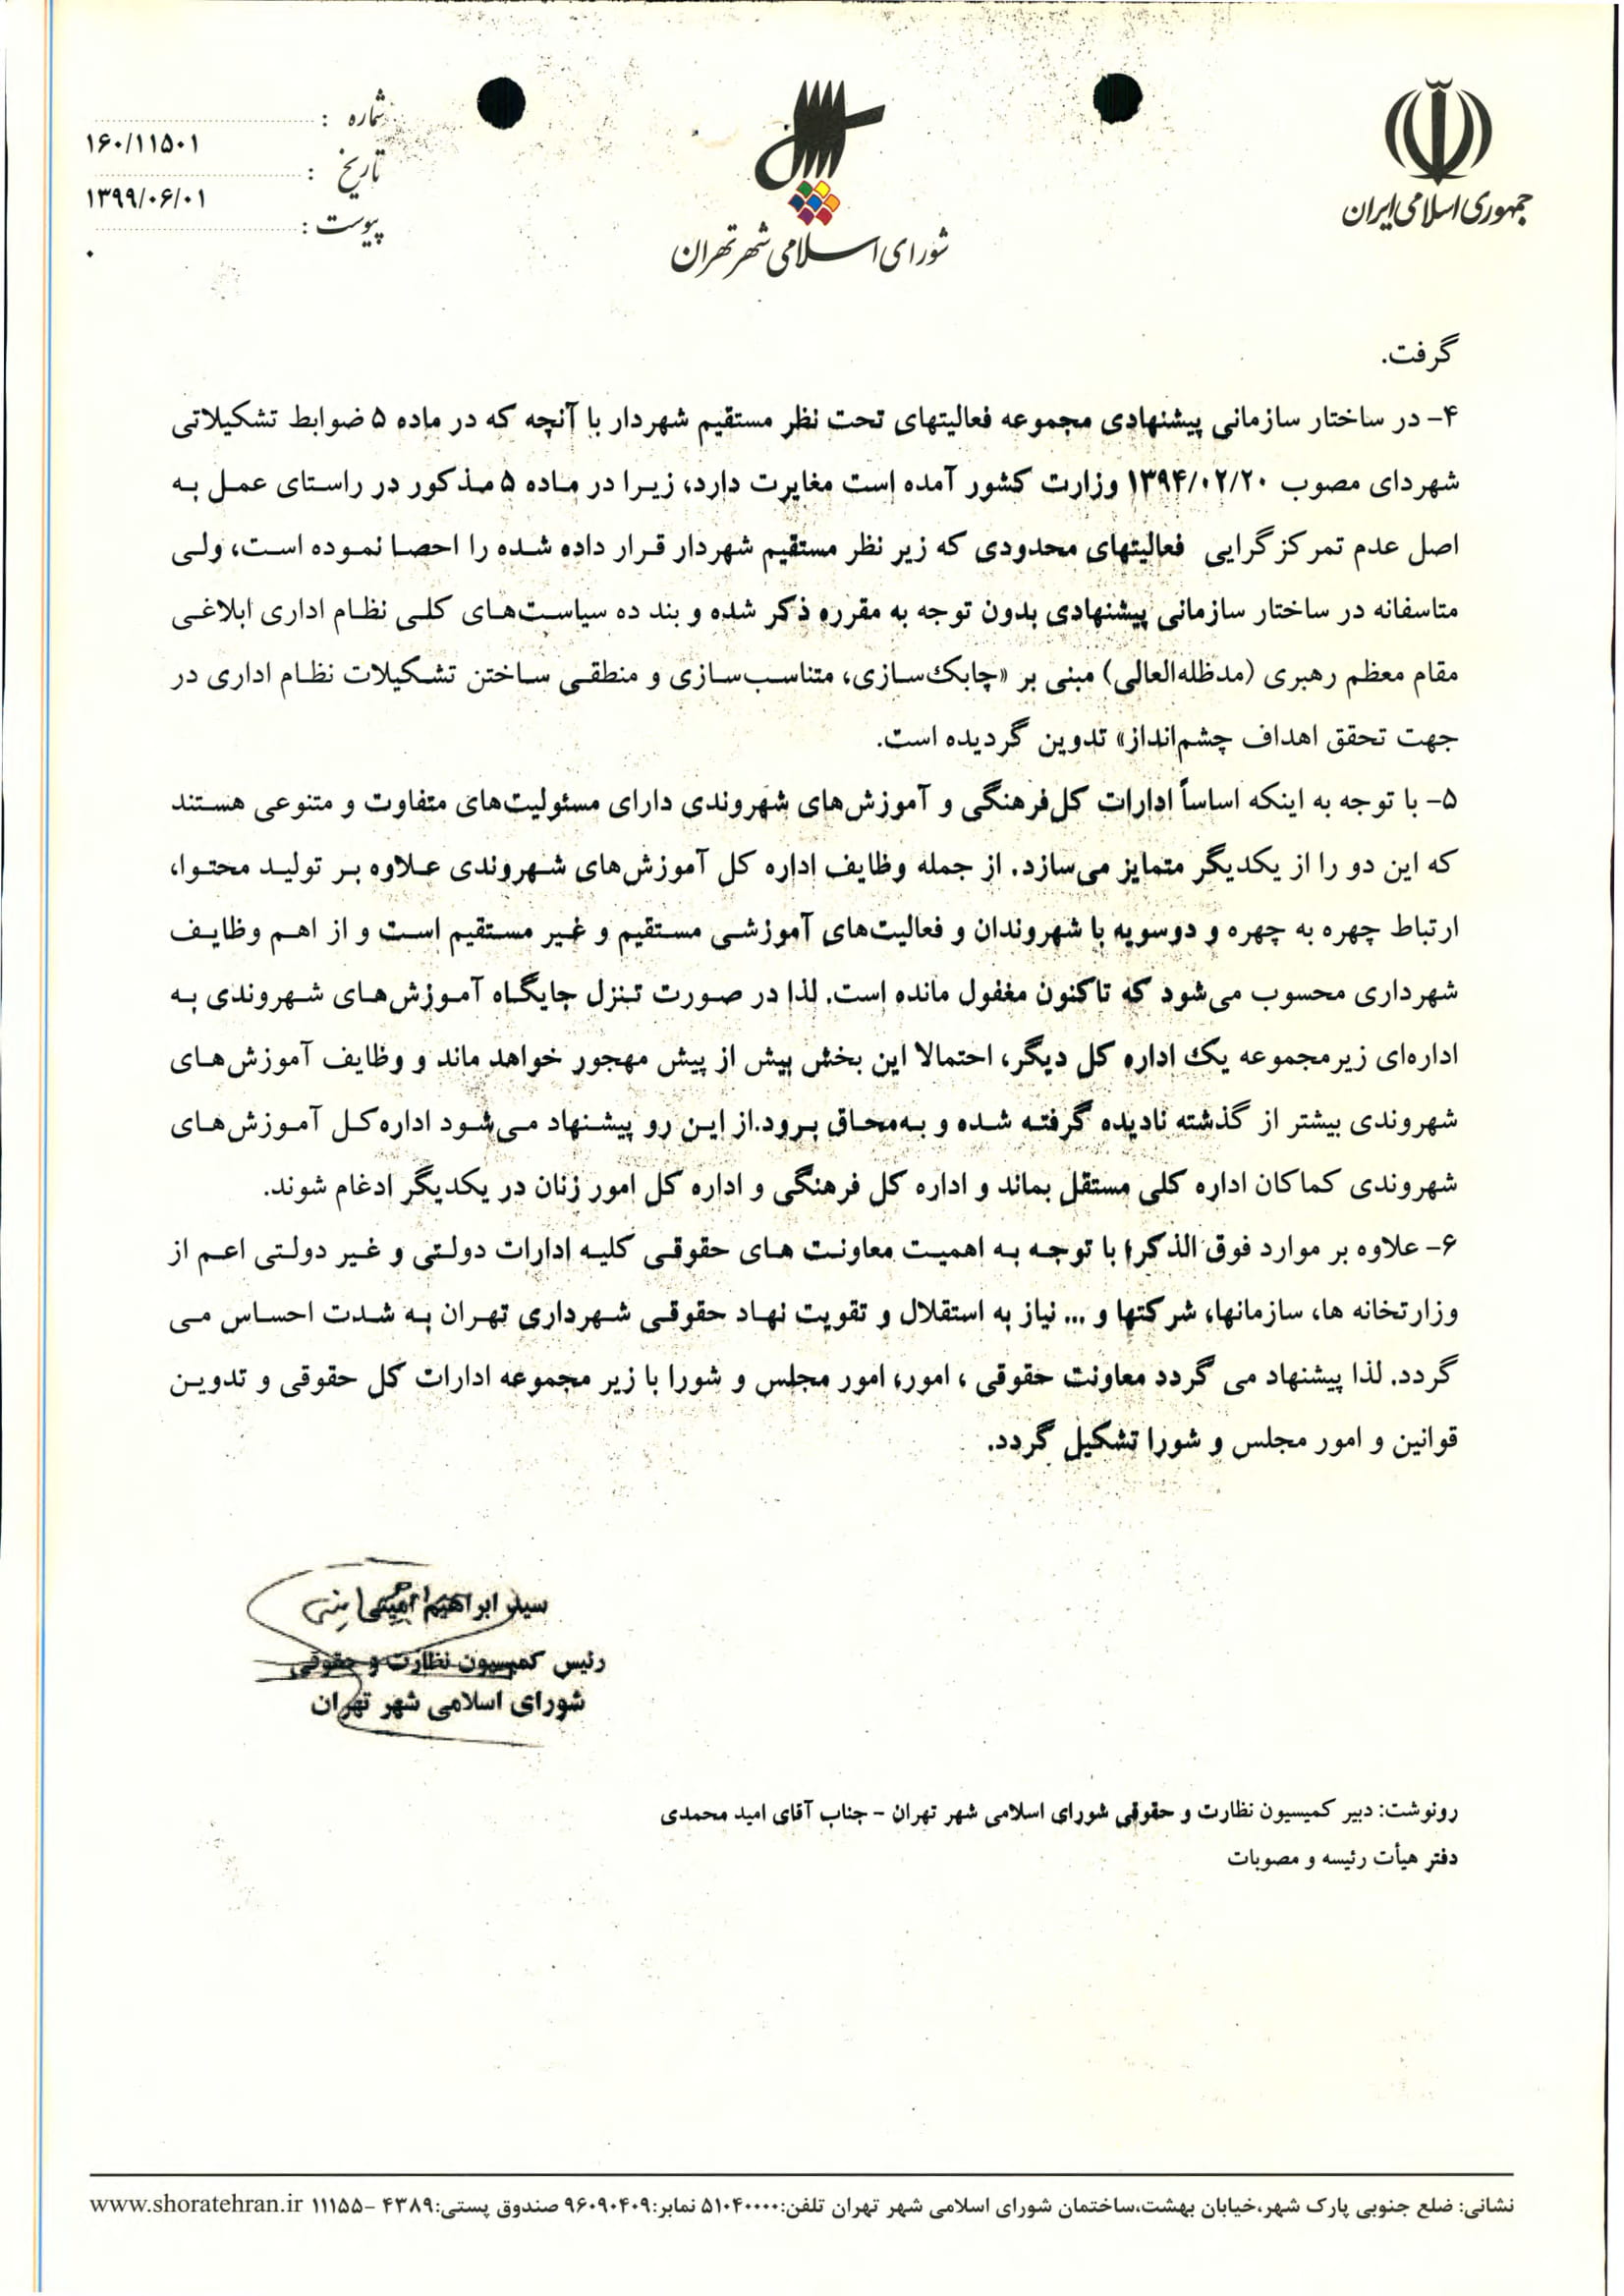 جمهوری اسلامی ایران
شورای اسلامی شهر تهران
شماره :
۱۶۰/۱۱۵۰۱
تاریخ :
۱۳۹۹/۰۶/۰۱
پیوست :
۰
گرفت.
۴- در ساختار سازمانی پیشنهادی مجموعه فعالیتهای تحت نظر مستقیم شهردار با آنچه که در ماده ۵ ضوابط تشکیلاتی
شهردای مصوب ۱۳۹۴/۰۲/۲۰ وزارت کشور آمده است مغایرت دارد، زیرا در ماده ۵ مذکور در راستای عمل به
اصل عدم تمرکزگرایی فعالیتهای محدودی که زیر نظر مستقیم شهردار قرار داده شده را احصا نموده است، ولی
متاسفانه در ساختار سازمانی پیشنهادی بدون توجه به مقرره ذکر شده و بند ده سیاست‌های کلی نظام اداری ابلاغی
مقام معظم رهبری (مدظله‌العالی) مبنی بر «چابک‌سازی، متناسب‌سازی و منطقی ساختن تشکیلات نظام اداری در
جهت تحقق اهداف چشم‌انداز» تدوین گردیده است.
۵- با توجه به اینکه اساساً ادارات کل‌فرهنگی و آموزش‌های شهروندی دارای مسئولیت‌های متفاوت و متنوعی هستند
که این دو را از یکدیگر متمایز می‌سازد. از جمله وظایف اداره کل آموزش‌های شهروندی علاوه بر تولید محتوا،
ارتباط چهره به چهره و دوسویه با شهروندان و فعالیت‌های آموزشی مستقیم و غیر مستقیم است و از اهم وظایف
شهرداری محسوب می‌شود که تاکنون مغفول مانده است. لذا در صورت تنزل جایگاه آموزش‌های شهروندی به
اداره‌ای زیرمجموعه یک اداره کل دیگر، احتمالا این بخش بیش از پیش مهجور خواهد ماند و وظایف آموزش‌های
شهروندی بیشتر از گذشته نادیده گرفته شده و به‌محاق برود.از این رو پیشنهاد می‌شود اداره‌کل آموزش‌های
شهروندی کماکان اداره کلی مستقل بماند و اداره کل فرهنگی و اداره کل امور زنان در یکدیگر ادغام شوند.
۶- علاوه بر موارد فوق الذکر؛ با توجه به اهمیت معاونت های حقوقی کلیه ادارات دولتی و غیر دولتی اعم از
وزارتخانه ها، سازمانها، شرکتها و ... نیاز به استقلال و تقویت نهاد حقوقی شهرداری تهران به شدت احساس می
گردد. لذا پیشنهاد می گردد معاونت حقوقی ، امور، امور مجلس و شورا با زیر مجموعه ادارات کل حقوقی و تدوین
قوانین و امور مجلس و شورا تشکیل گردد.
سید ابراهیم امینی
رئیس کمیسیون نظارت و حقوقی
شورای اسلامی شهر تهران
رونوشت: دبیر کمیسیون نظارت و حقوقی شورای اسلامی شهر تهران - جناب آقای امید محمدی
دفتر هیأت رئیسه و مصوبات
نشانی: ضلع جنوبی پارک شهر،خیابان بهشت،ساختمان شورای اسلامی شهر تهران تلفن:۵۱۰۴۰۰۰۰ نمابر:۹۶۰۹۰۴۰۹ صندوق پستی:۴۳۸۹ -۱۱۱۵۵ www.shoratehran.ir